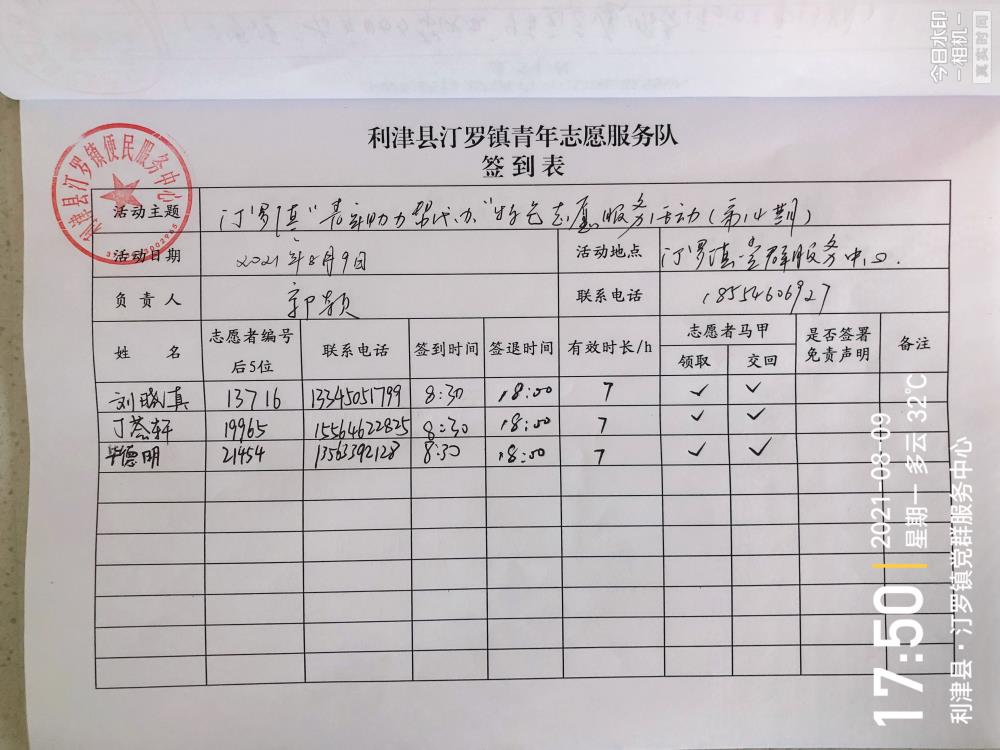 利津县汀罗镇青年志愿服务队
签到表
利津县汀罗镇便民服务中心
活动主题 汀罗镇"青年助力帮代办"特色志愿服务活动(第14期)
活动日期 2021年8月9日 活动地点 汀罗镇党群服务中心.
负责人 郭颖 联系电话 18554606927
姓名 志愿者编号后5位 联系电话 签到时间 签退时间 有效时长/h 志愿者马甲 是否签署免责声明 备注
领取 交回
刘晓真 13716 13345051799 8:30 18:00 7 ✓ ✓
丁荟轩 19965 15564622825 8:30 18:00 7 ✓ ✓
毕德明 21454 13563392128 8:30 18:00 7 ✓ ✓
今日水印
相机
真实时间
17:50
2021-08-09
星期一 多云 32℃
利津县·汀罗镇党群服务中心